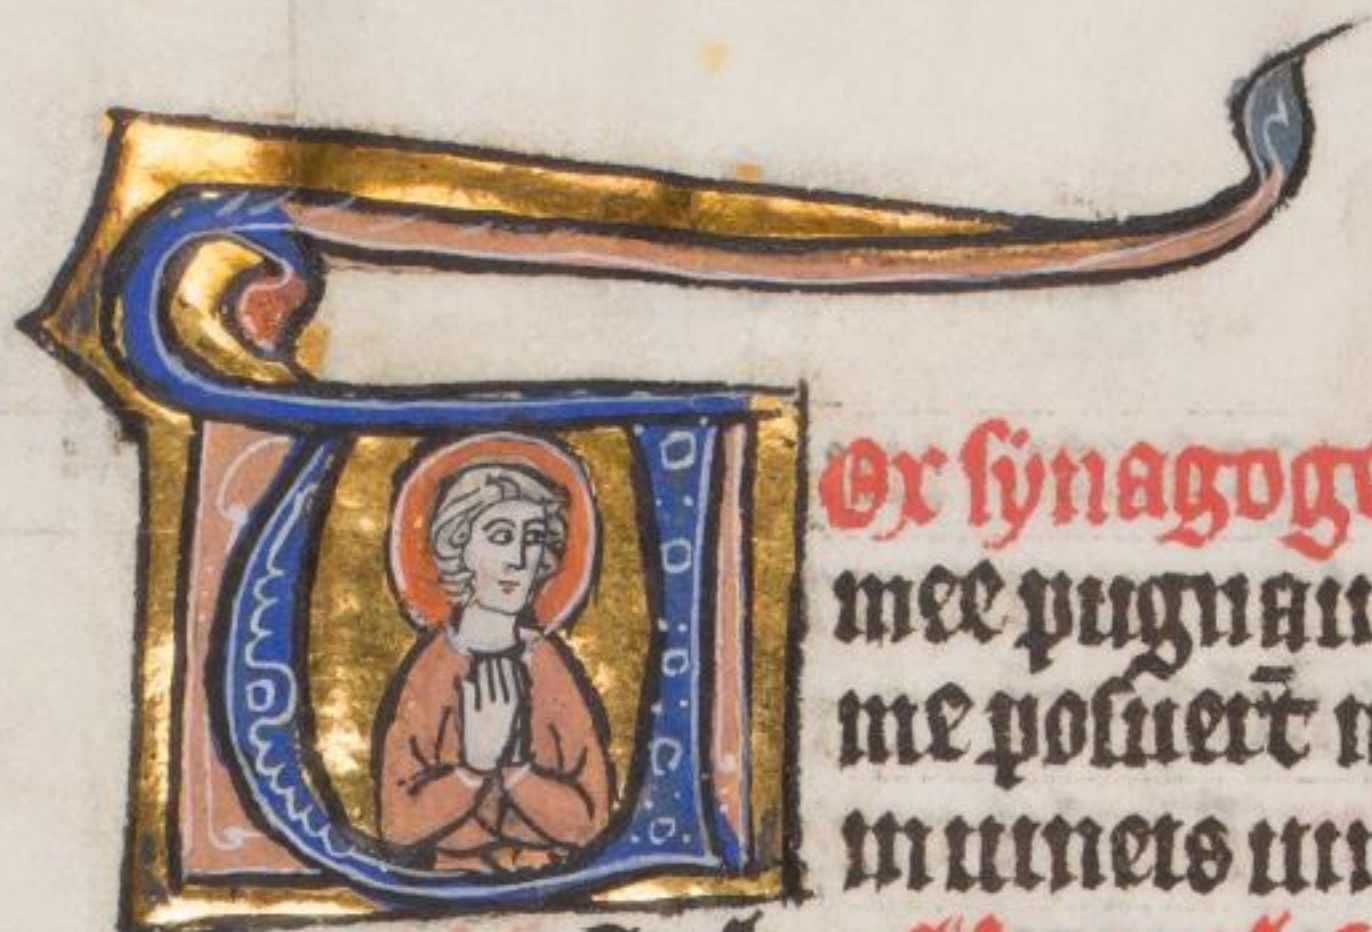 Vox synagoge
mee pugnau
me posuer̄t m
in uineis uin